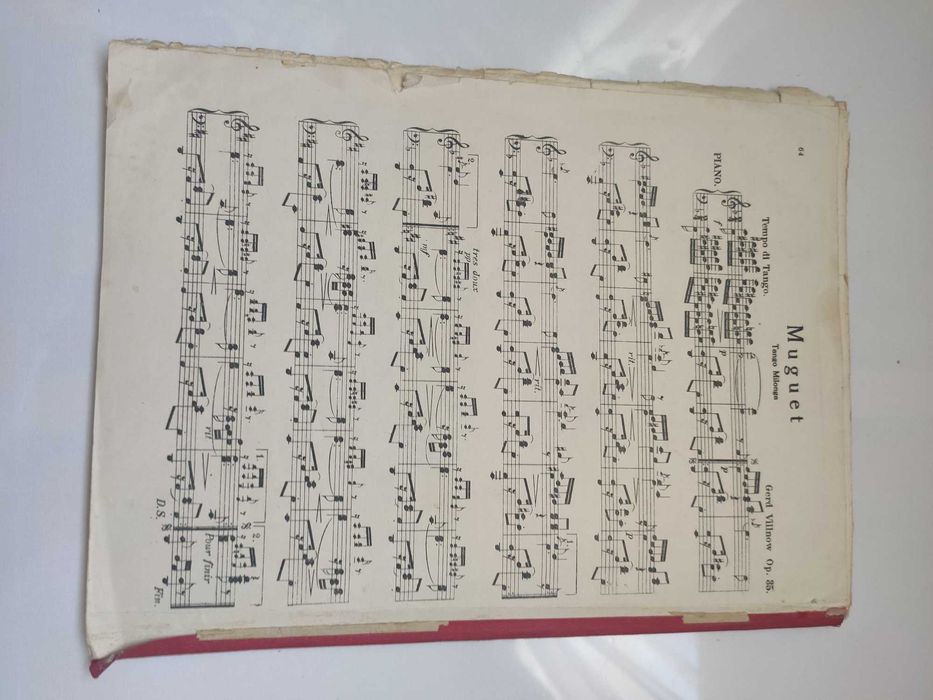 64
Muguet
Tango Milonga
Tempo di Tango.
Gerd Villnow Op. 35.
PIANO.
f
p
p
rit.
p
rit.
1.
2.
très doux
pp
mf
1.
2.
rit.
Pour finir
D.S.
Fin.